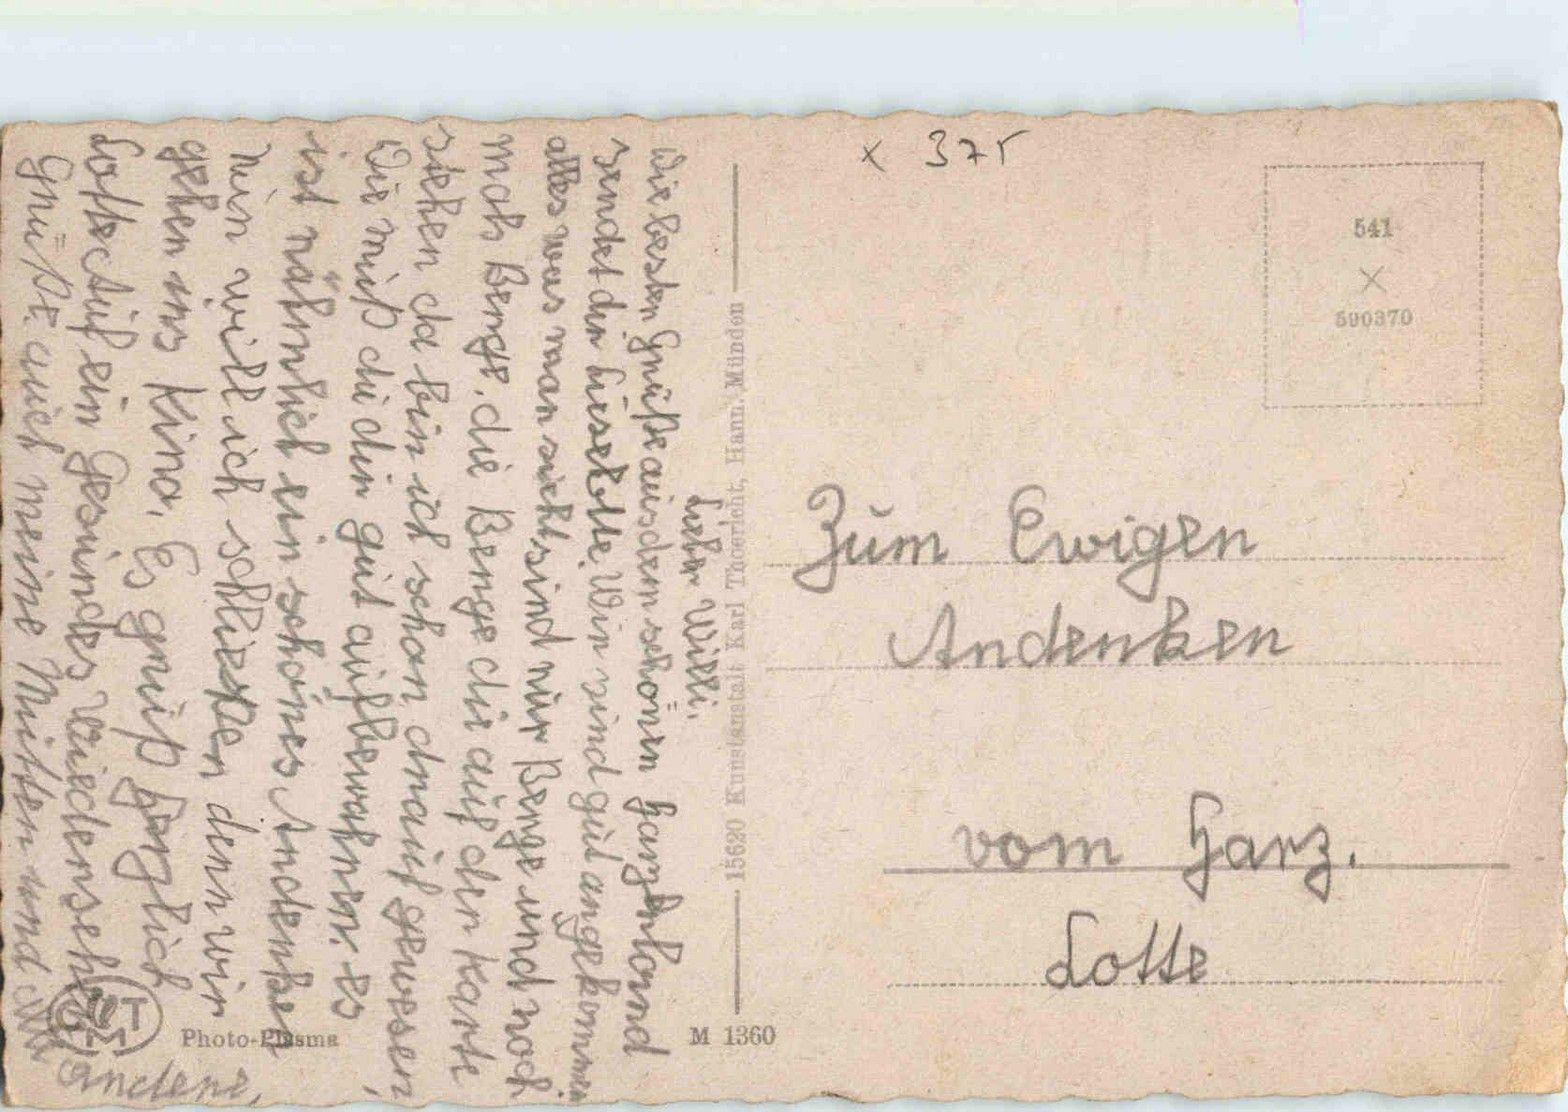 Lieber Willi,
Die besten Grüße aus dem schönen Harz
sendet dir Liselotte. Wir sind gut angekommen
alles was man sieht sind nur Berge und noch
mals Berge. die Berge die auf der Karte
stehen da bin ich schon drauf gewesen,
Die muß du dir gut aufbewahren. es
ist nähmlich ein schönes Andenken
nun will ich schließen denn wir
gehen ins Kino. Es grüß herzlich
Lotte auf ein gesundes wiedersehen
Grüße auch meine Mutter und
Andere.
x 375
541
X
590370
Zum Ewigen
Andenken
vom Harz.
Lotte
15620 Kunstanstalt Karl Thoericht, Hann. Münden
Photo-Plasma
M 1360